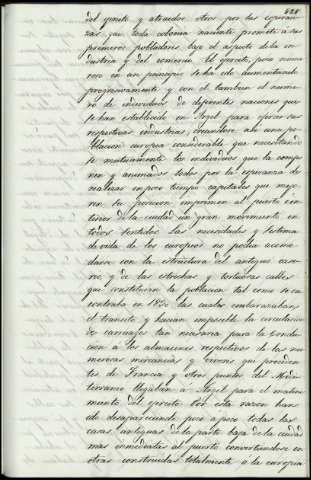 428
del ejercito y atraidos otros por las esperan-
zas que toda colonia naciente promete á sus
primeros pobladores bajo el aspecto de la in-
dustria y del comercio. El ejercito, poco nume-
roso en un principio se ha ido aumentando
progresivamente y con el tambien el nume-
ro de individuos de diferentes naciones que
se han establecido en Argel para ejercer sus
respectivas industrias, creandose asi una po-
blacion europea considerable que necesitando-
se mutuamente los individuos que la compo-
nen y animados todos por la esperanza de
realizar en poco tiempo capitales que mejo-
ren su posicion imprimen al puerto é in-
terior de la ciudad un gran movimiento en
todos sentidos. Las necesidades y sistema
de vida de los europeos no podia acomo-
darse con la estructura del antiguo case-
rio y de las estrechas y tortuosas calles
que constituian la poblacion tal como se en-
contraba en 1830 las cuales embarazaban
el transito y hacian imposible la circulacion
de carruajes tan necesaria para la conduc-
cion á los almacenes respectivos de las nu-
merosas mercancias y viveres que proceden-
tes de Francia y otros puntos del Medi-
terraneo llegaban á Argel para el mateni-
miento del ejercito. Por esta razon han
ido desapareciendo poco á poco todas las
casas antiguas de la parte baja de la ciudad
mas inmediatas al puerto convirtiendose en
otras construidas totalmente á la europea